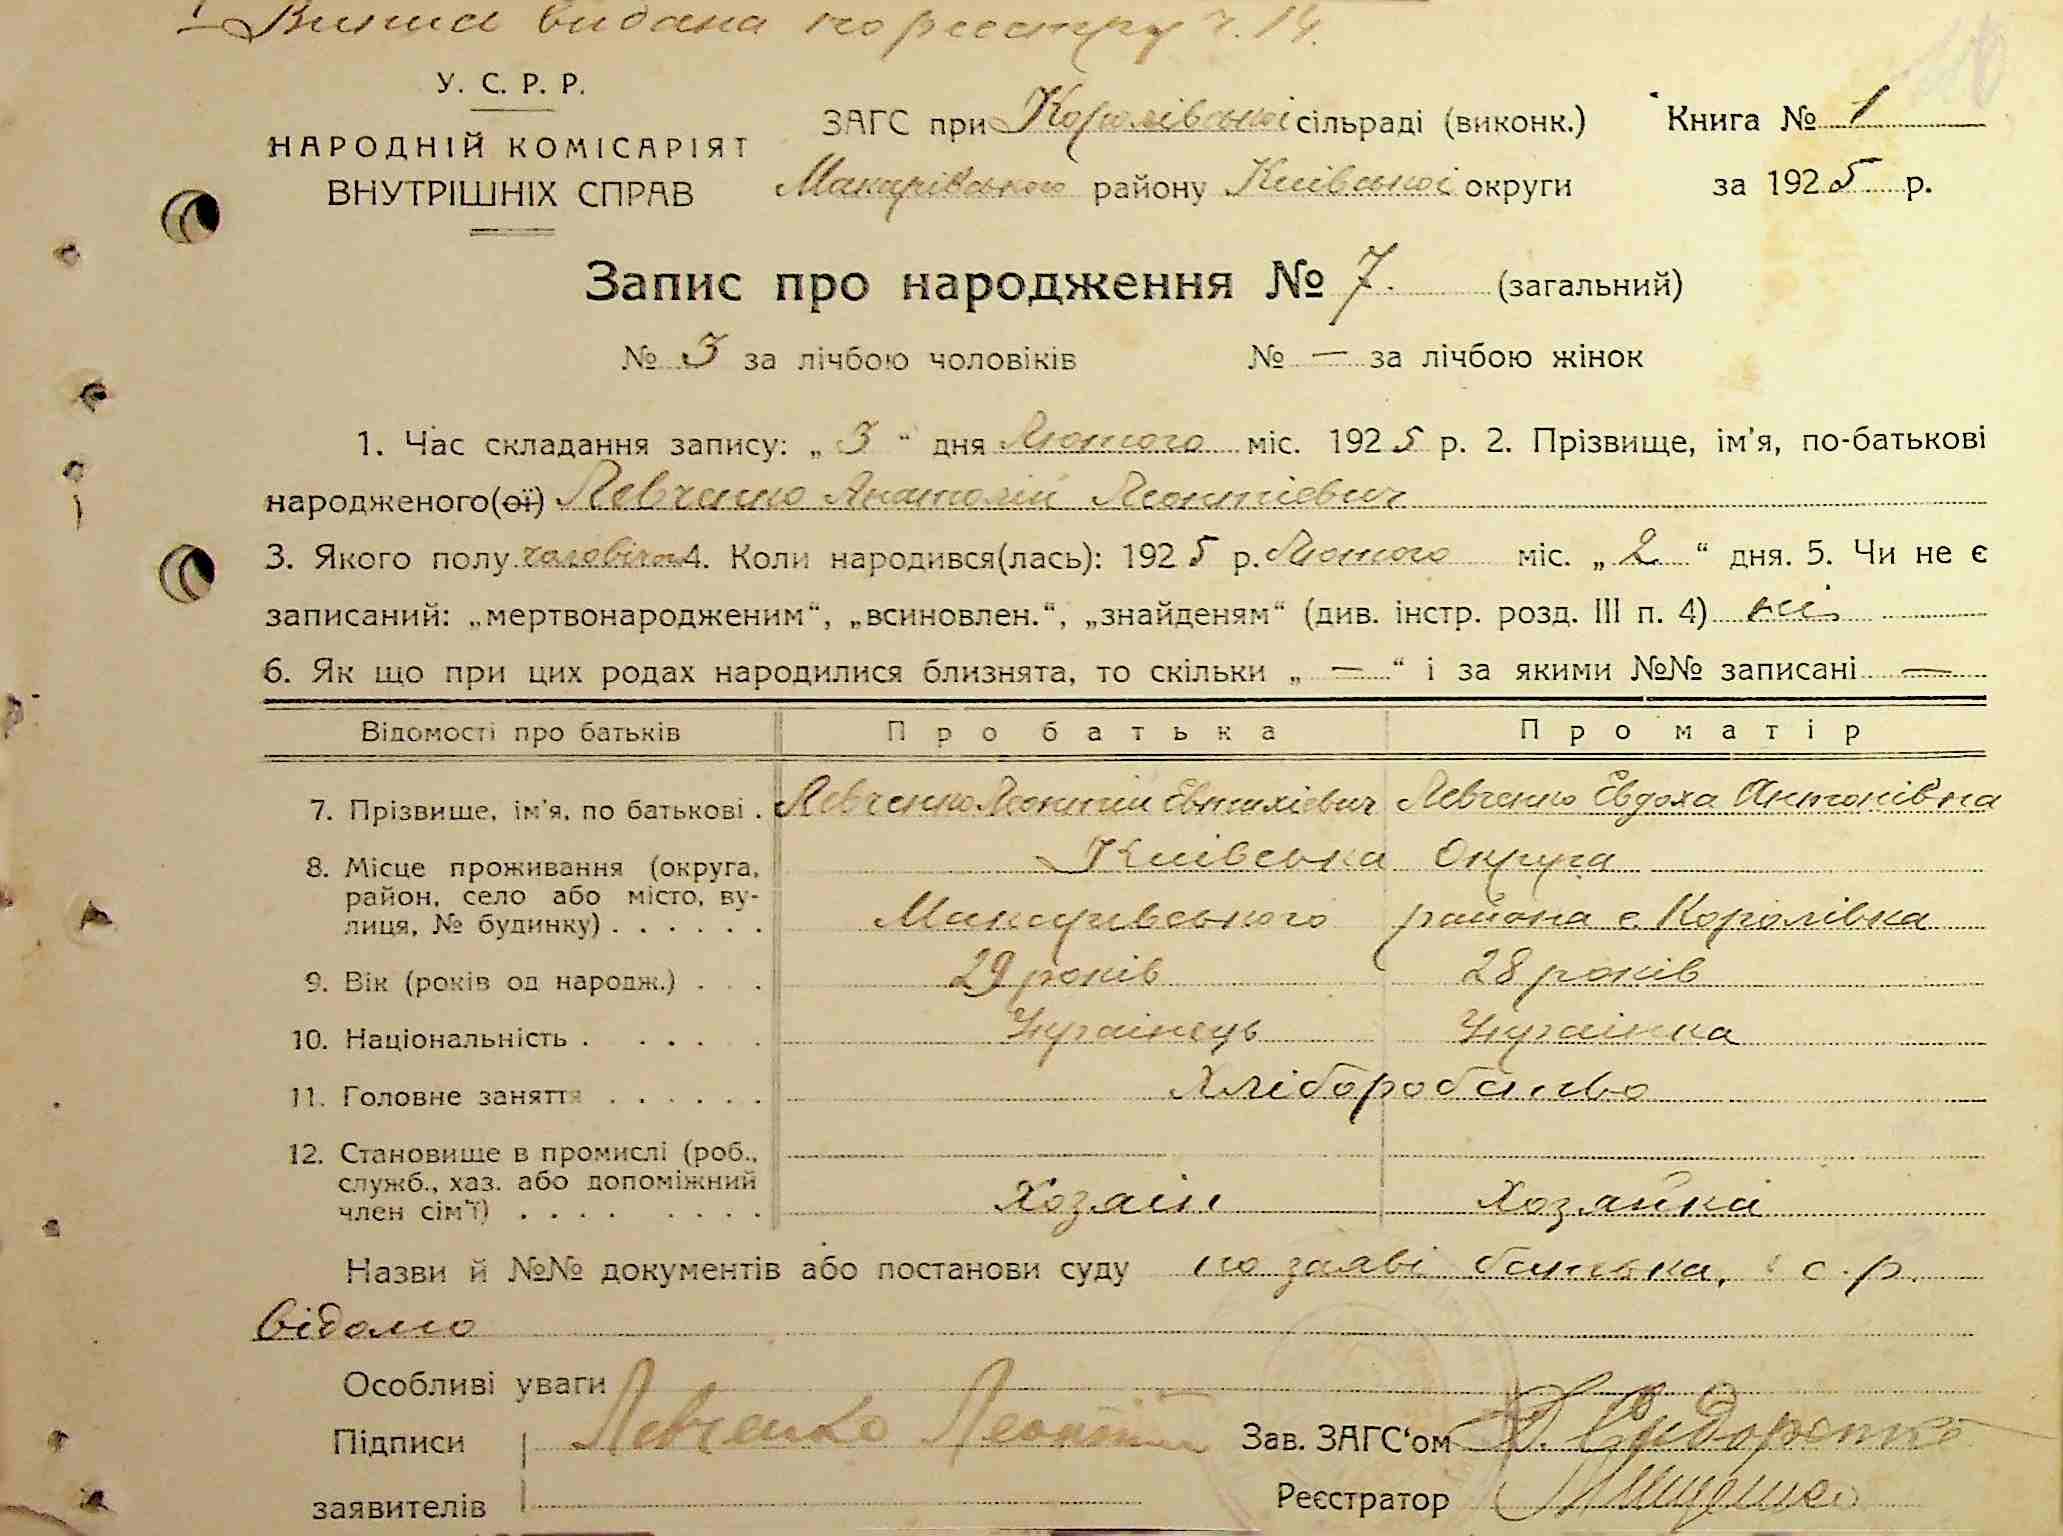 Випис видана по реестру ч. 14.
У. С. Р. Р.
НАРОДНІЙ КОМІСАРІЯТ
ВНУТРІШНІХ СПРАВ
ЗАГС при Королівської сільраді (виконк.) Книга № 1
Макарівського району Київської округи за 1925 р.
Запис про народження № 7. (загальний)
№ 3 за лічбою чоловіків № — за лічбою жінок
1. Час складання запису: „ 3 “ дня Лютого міс. 1925 р. 2. Прізвище, ім'я, по-батькові
народженого(ої) Левченко Анатолій Леонтієвич
3. Якого полу чоловіча 4. Коли народився(лась): 1925 р. Лютого міс. „ 2 “ дня. 5. Чи не є
записаний: „мертвонародженим“, „всиновлен.“, „знайденям“ (див. інстр. розд. III п. 4) ні
6. Як що при цих родах народилися близнята, то скільки „ — “ і за якими №№ записані —
Відомості про батьків Про батька Про матір
7. Прізвище, ім'я, по батькові . Левченко Леонтій Евтихієвич Левченко Евдоха Антонівна
8. Місце проживання (округа, район, село або місто, вулиця, № будинку) . . . . . . Київська Округа
Макарівського района с Королівка
9. Вік (років од народж.) . . . 29 років 28 років
10. Національність . . . . . Українець Українка
11. Головне заняття . . . . . . Хліборобство
12. Становище в промислі (роб., служб., хаз. або допоміжний член сім'ї) . . . . . . . . Хозаін Хозяйка
Назви й №№ документів або постанови суду по заяві батька, с. р.
відомо
Особливі уваги
Підписи Левченко Леонтій Зав. ЗАГС‘ом Сидоренко
заявителів Реєстратор